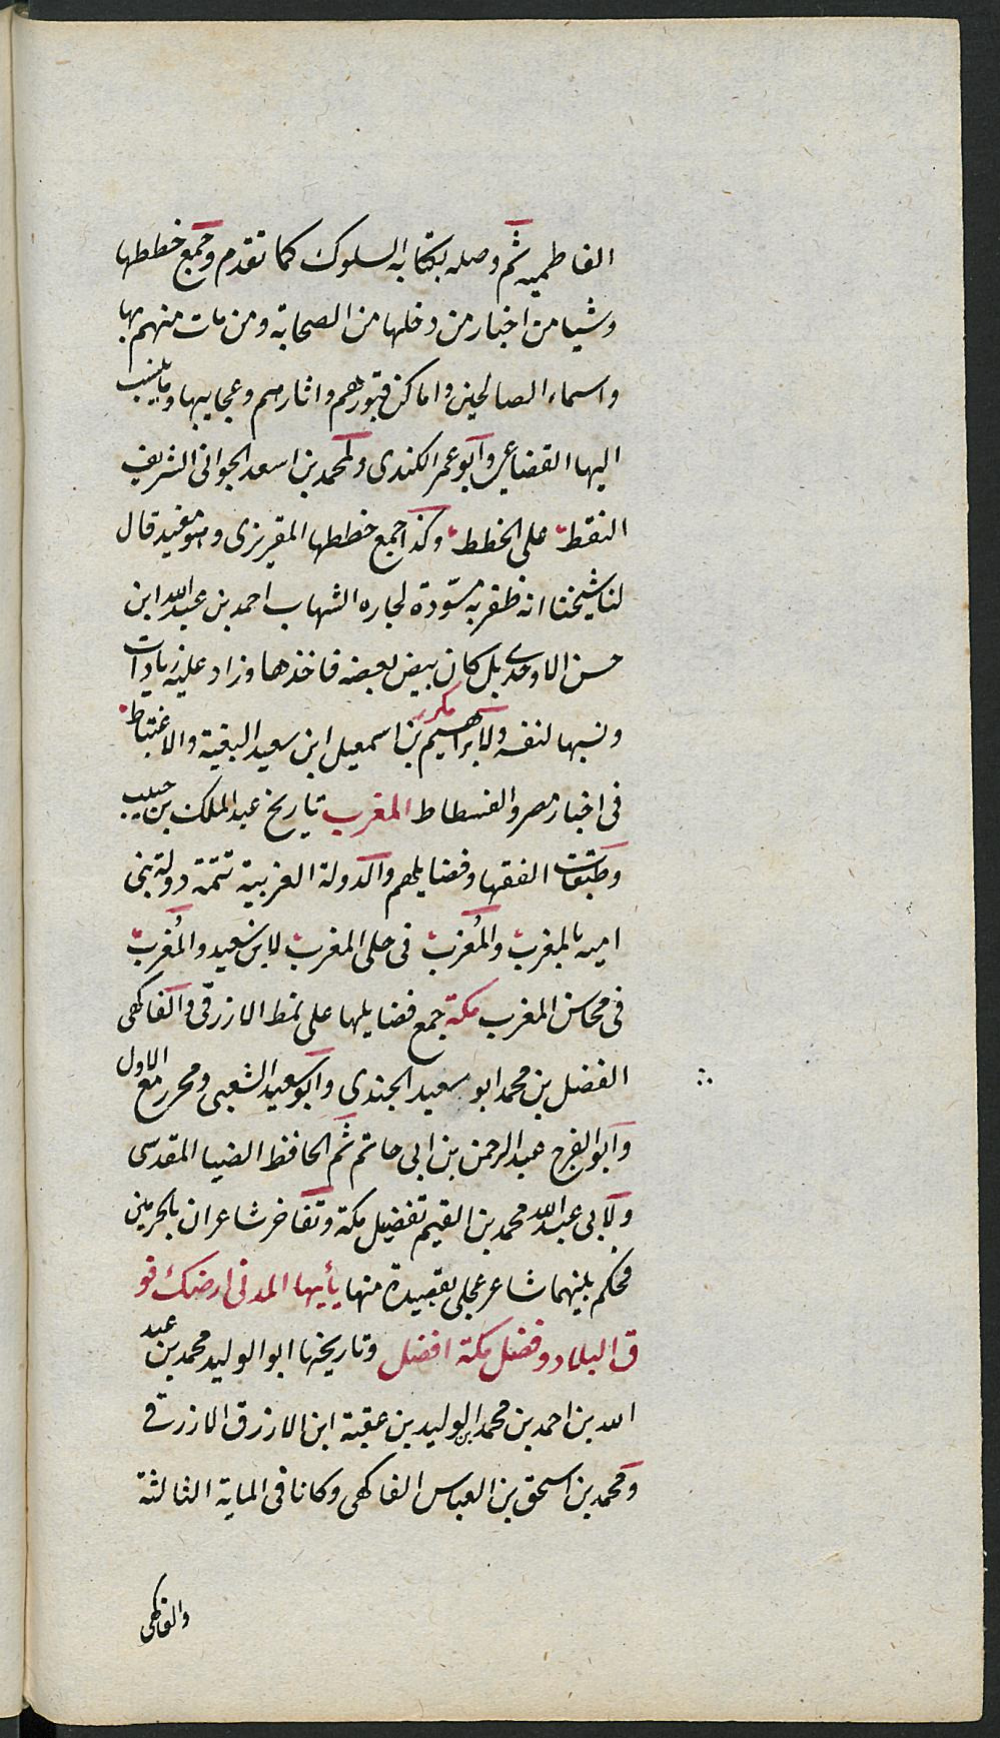 الفاطميه ثم وصله بكتابه السلوك كما تقدم وجمع خططها
وشيا من اخبار من دخلها من الصحابة ومن مات منهم بها
واسماء الصالحين واماكن قبورهم واثارهم وعجايبها وما ينسب
اليها القضاعي وابو عمر الكندى ولمحمد بن اسعد الجوانى الشريف
النقط على الخطط وكذا جمع خططها المقريزى وهو مفيد قال
لنا شيخنا انه ظفر به مسودة لجاره الشهاب احمد بن عبد الله ابن
حسن الاوحدى بل كان بيض بعضه فاخذها وزاد عليه زيادات
ونسبها لنفسه ولابراهيم بن اسمعيل ابن سعيد البغية والاغتباط
مكرر
فى اخبار مصر والفسطاط المغرب تاريخ عبد الملك بن حبيب
وطبقات الفقها وفضايلهم والدولة العربية تتمة دولة بنى
اميه بالمغرب والمُغرب فى حلى المغرب لابن سعيد والمُغرب
فى محاسن المغرب مكة جمع فضايلها على نمط الازرقى والفاكهى
الفضل بن محمد ابو سعيد الجندى وابو سعيد الشعبى ومحرر مع الاول
وابو الفرج عبد الرحمن بن ابى حاتم ثم الحافظ الضيا المقدسى
ولابى عبد الله محمد بن القيم تفضيل مكة وتفاخر شاعران بالحرمين
فحكم بينهما شاعر عجلى بقصيدة منها يأيها المدنى ارضك فو
ق البلاد وفضل مكة افضل وتاريخها ابو الوليد محمد بن عبد
الله بن احمد بن محمد بن الوليد بن عقبة ابن الازرق الازرقى
ومحمد بن اسحق بن العباس الفاكهى وكانا فى الماية الثالثة
والفاكهى